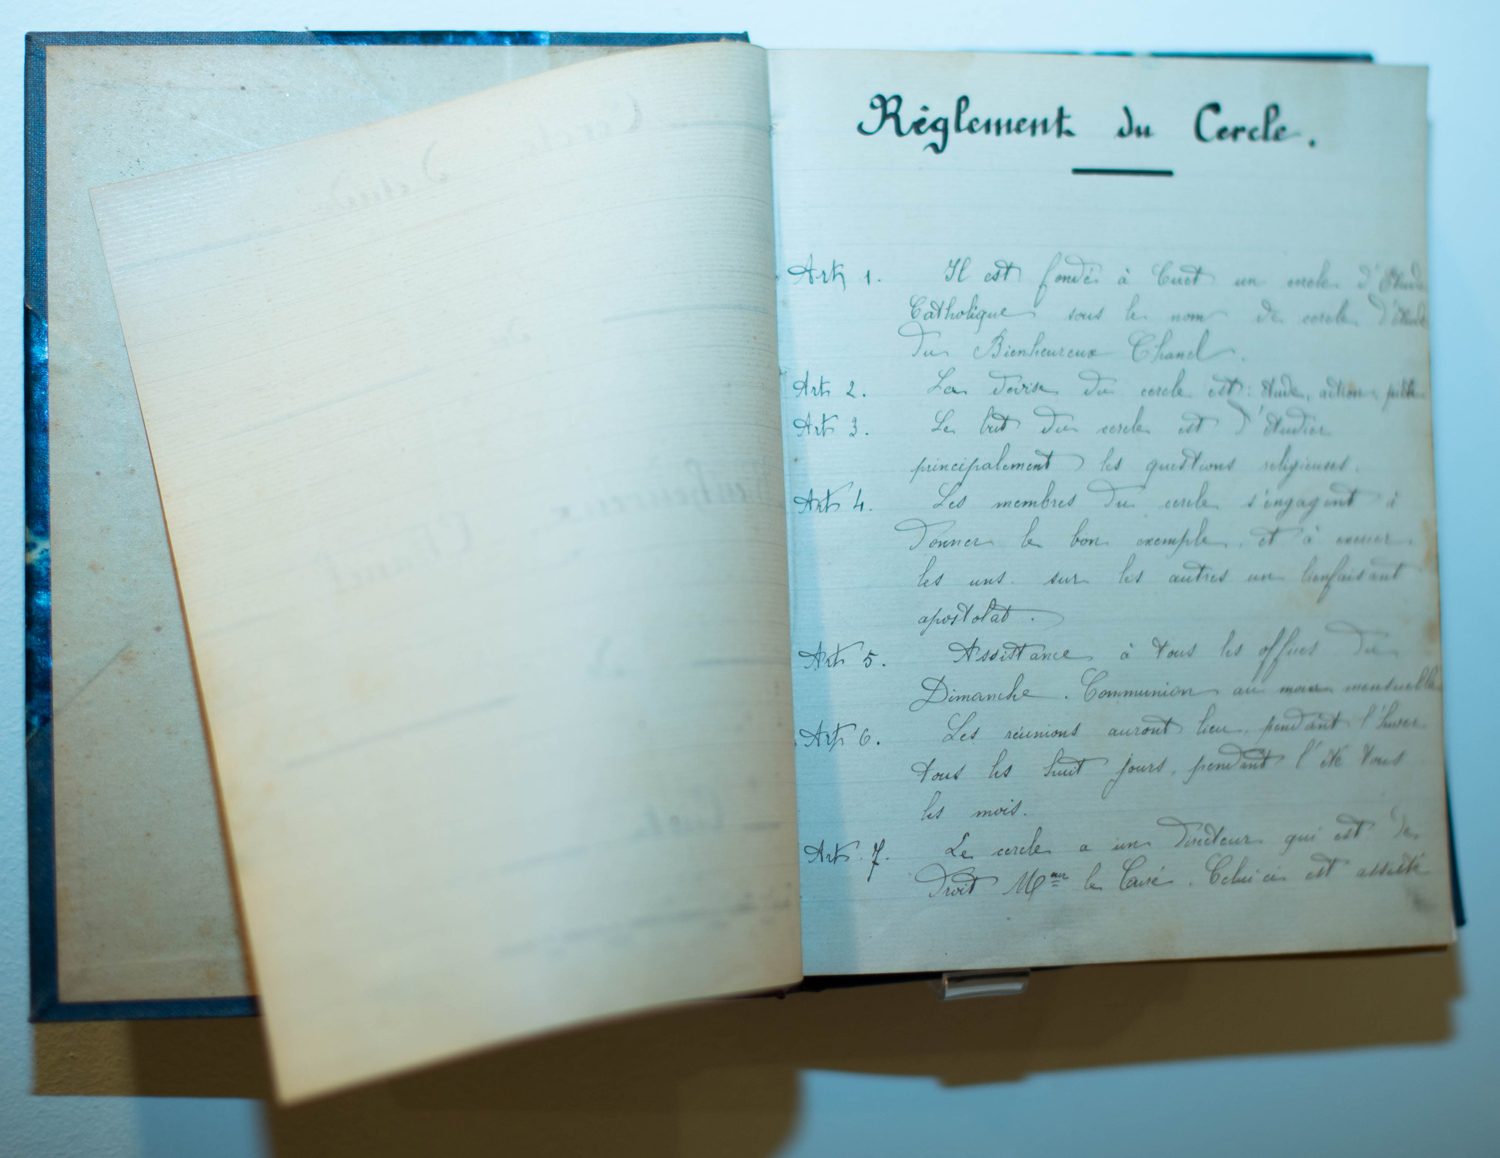 Cercle
d'étude
du
Bienheureux
Chanel
de
Cuet
Règlement du Cercle.
Art 1. Il est fondé à Cuet un cercle d'Etude
Catholique sous le nom de cercle d'étude
du Bienheureux Chanel.
Art 2. La devise du cercle est: étude, action, piété
Art 3. Le but du cercle est d'étudier
principalement les questions religieuses.
Art 4. Les membres du cercle s'engagent à
donner le bon exemple, et à exercer
les uns sur les autres un bienfaisant
apostolat.
Art 5. Assistance à tous les offices du
Dimanche. Communion au moins mensuelle
Art 6. Les réunions auront lieu, pendant l'hiver
tous les huit jours, pendant l'été tous
les mois.
Art. 7. Le cercle a un Directeur qui est de
droit Mr le Curé. Celui ci est assisté